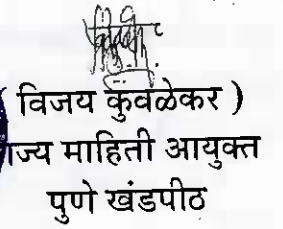 ( विजय कुंवळेकर )
ाज्य माहिती आयुक्त
पुणे खंडपीठ